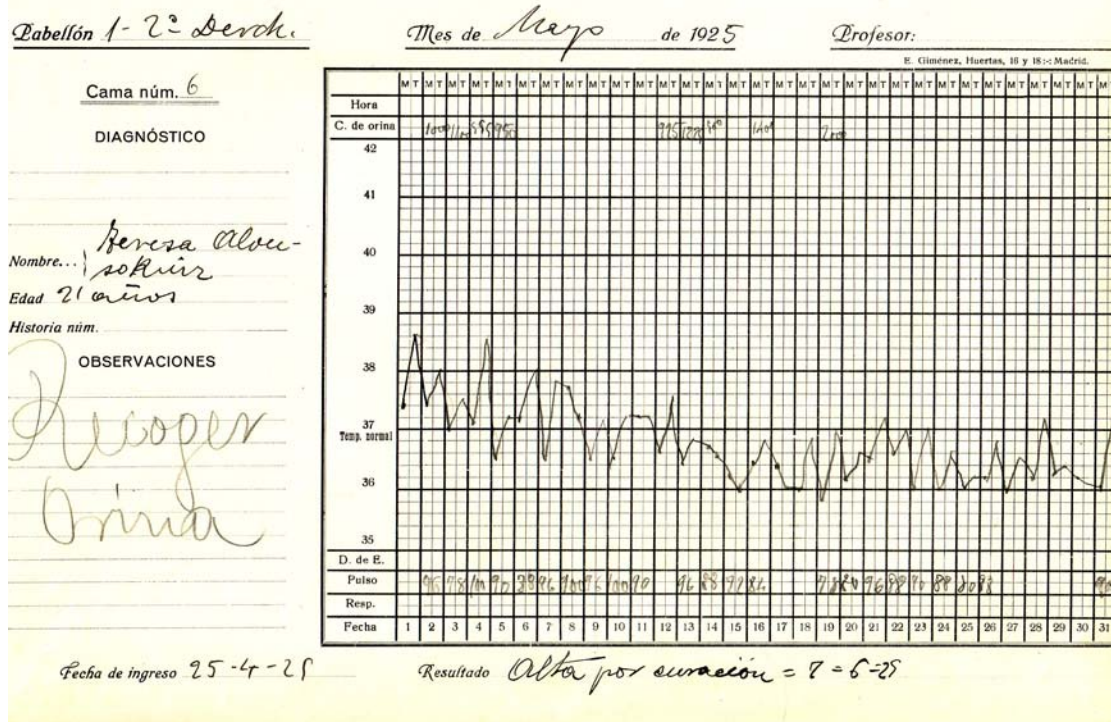 Pabellón 1-2º Derch.
Mes de Mayo de 1925
Profesor:
E. Giménez, Huertas, 16 y 18:-: Madrid.
Cama núm. 6
DIAGNÓSTICO
Nombre... Teresa Alon-
so Ruiz
Edad 21 años
Historia núm.
OBSERVACIONES
Recoger
Orina
M T M T M T M T M T M T M T M T M T M T M T M T M T M T M T M T M T M T M T M T M T M T M T M T M T M T M T M T M T M T M
Hora
C. de orina 1000 1100 950 1225 1400 2000
42
41
40
39
38
37
Temp. normal
36
35
D. de E.
Pulso 96 78 100 90 88 96 100 96 100 90 96 88 84 96 88 88 80 88
Resp.
Fecha 1 2 3 4 5 6 7 8 9 10 11 12 13 14 15 16 17 18 19 20 21 22 23 24 25 26 27 28 29 30 31
Fecha de ingreso 25-4-25
Resultado Alta por curación = 7-6-25